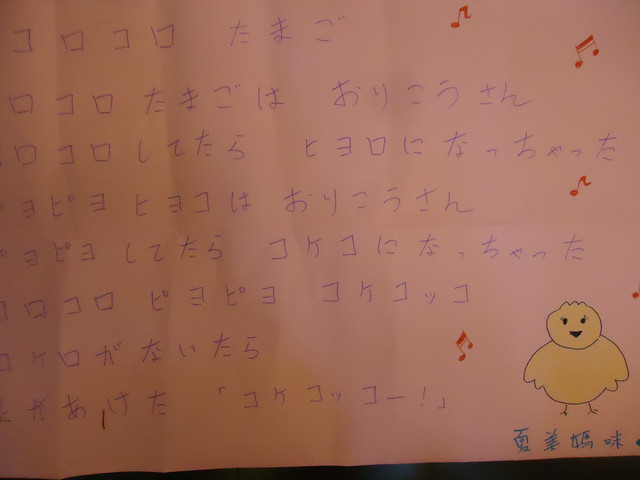 コロコロ たまご
ロコロ たまごは おりこうさん
ロコロ してたら ヒヨロになっちゃった
ピヨピヨ ヒヨコは おりこうさん
ピヨピヨ してたら コケコになっちゃった
コロコロ ピヨピヨ コケコッコ
コケロがないたら
があけた 「コケコッコー!」
夏美媽咪